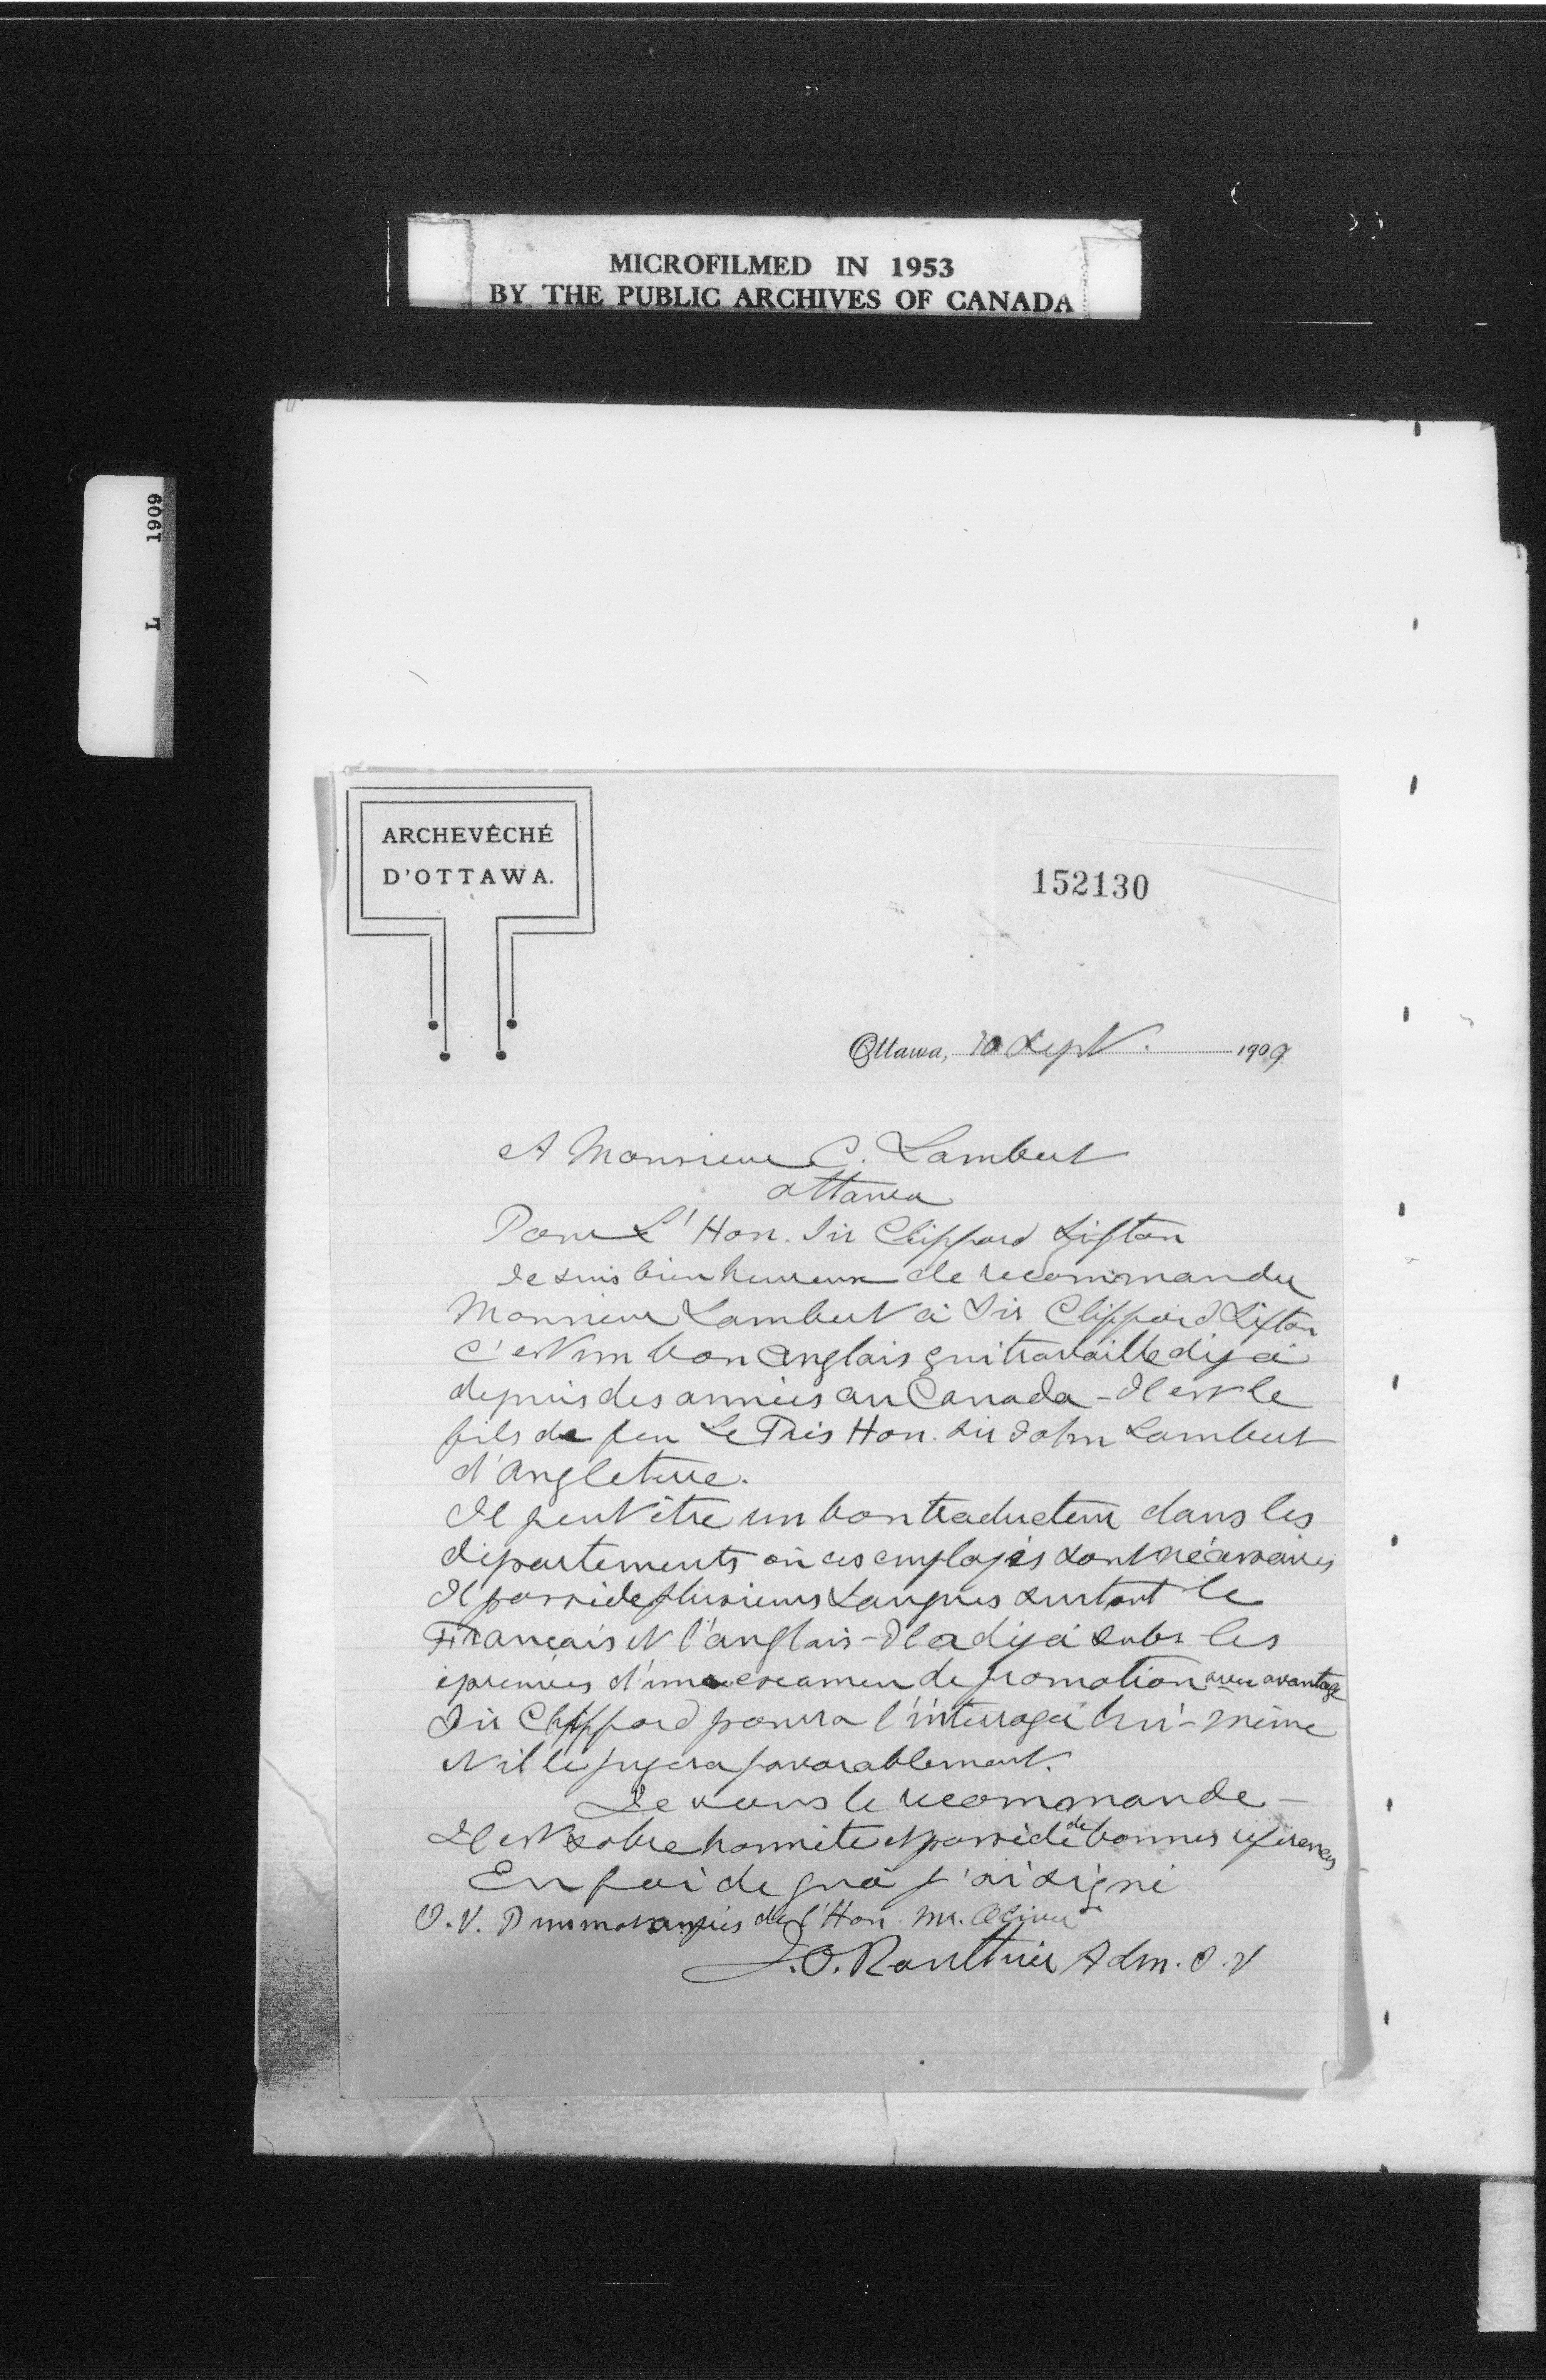 MICROFILMED IN 1953
BY THE PUBLIC ARCHIVES OF CANADA
L 1909
ARCHEVÊCHÉ
D'OTTAWA.
152130
Ottawa, 10 Sept. 1909
A Monsieur C. Lambert
Ottawa
Pour L'Hon. Sir Clifford Sifton
Je suis bien heureux de recommander
Monsieur Lambert à Sir Clifford Sifton
C'est un bon Anglais qui travaille déjà
depuis des années au Canada - Il est le
fils de feu Le Très Hon. Sir John Lambert
d'Angleterre.
Il peut être un bon traducteur dans les
départements où ces employés sont nécessaires
Il possède plusieurs Langues surtout le
Français et l'anglais - Il a déjà subi les
épreuves d'un examen de promotion avec avantage
Sir Clifford pourra l'interroger lui-même
et il le jugera favorablement.
Je vous le recommande -
Il est sobre honnête et possède de bonnes références
En foi de quoi j'ai signé
O.V. auprès de l'Hon. Mr. Oliver
J.O. Routhier Adm. O.V